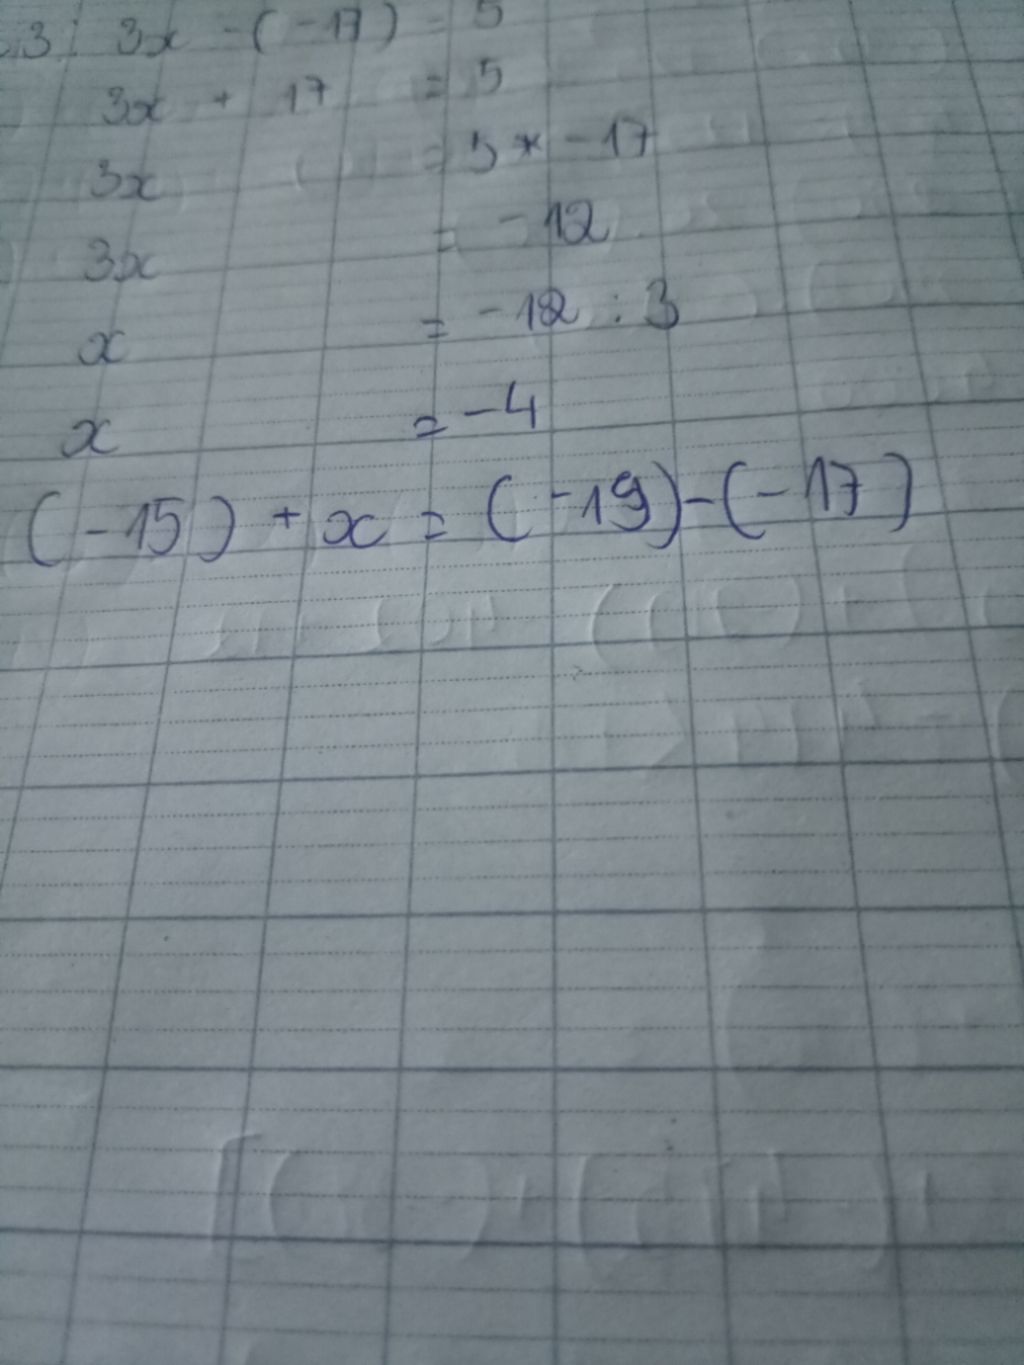 3: 3x - (-17) = 5
3x + 17 = 5
3x = 5 * - 17
3x = - 12
x = - 12 : 3
x = - 4
(-15) + x = (-19) - (-17)